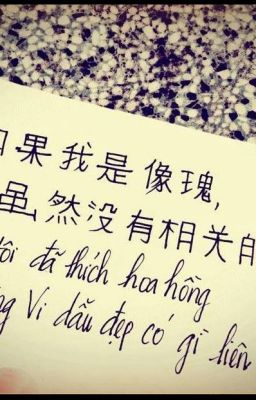 如果我是像瑰,
虽然没有相关的
tôi đã thích hoa hồng
Vi dẫu đẹp có gì liên